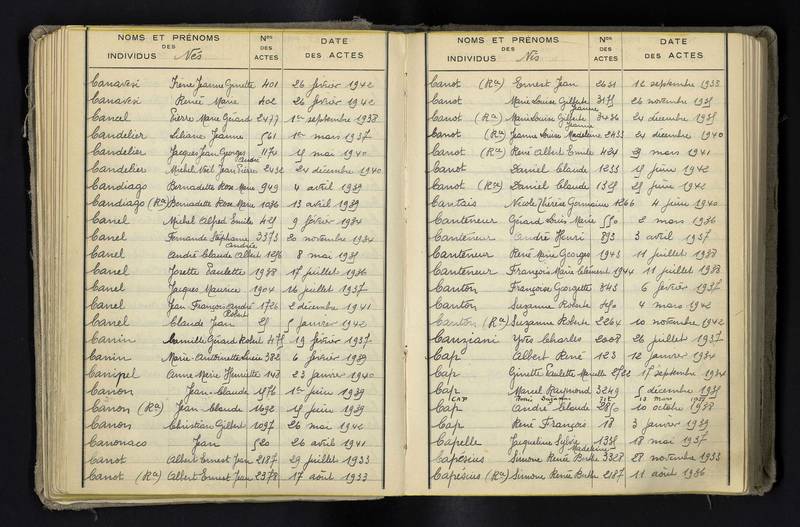 NOMS ET PRÉNOMS DES INDIVIDUS Nés
Nos DES ACTES
DATE DES ACTES
Canavesi Irène Jeanne Ginette 401 26 février 1942
Canavesi Renée Marie 402 26 février 1942
Cancel Pierre Marie Gérard 2477 1er septembre 1938
Candelier Liliane Jeanne 561 1er mars 1937
Candelier Jacques Jean Georges André 1172 15 mai 1940
Candelier Michel Noël Jean Pierre 2432 24 décembre 1940
Candiago Bernadette Rose Marie 949 4 avril 1939
Candiago (Ra) Bernadette Rose Marie 1036 13 avril 1939
Canel Michel Alfred Emile 425 9 février 1934
Canel Fernande Stéphanie 3373 20 novembre 1934
Canel André Claude Albert 1256 8 mai 1935
Canel Josette Paulette 1938 17 juillet 1936
Canel Jacques Maurice 1904 16 juillet 1937
Canel Jean François André Robert 1726 2 décembre 1941
Canel Claude Jean 25 5 janvier 1942
Canin Camille Gérard Robert 475 19 février 1937
Canin Marie Antoinette Louise 382 6 février 1939
Canipel Anne Marie Henriette 148 23 janvier 1940
Canon Jean Claude 1576 1er juin 1939
Canon (Ra) Jean Claude 1692 15 juin 1939
Canon Christian Gilbert 1097 26 mai 1942
Canonaco Jean 520 26 avril 1941
Canot Albert Ernest Jean 2187 29 juillet 1933
Canot (Ra) Albert Ernest Jean 2378 17 août 1933
NOMS ET PRÉNOMS DES INDIVIDUS Nés
Nos DES ACTES
DATE DES ACTES
Canot (Ra) Ernest Jean 2651 12 septembre 1933
Canot Marie Louise Gilberte Jeanne 3175 26 novembre 1935
Canot (Ra) Marie Louise Gilberte Jeanne 3436 24 décembre 1935
Canot (Ra) Jeanne Louise Madeleine 2433 24 décembre 1940
Canot (Ra) René Albert Emile 424 29 mars 1941
Canot Daniel Claude 1233 15 juin 1942
Canot (Ra) Daniel Claude 1325 25 juin 1942
Cantais Nicole Thérèse Germaine 1266 4 juin 1940
Canteneur Gérard Louis Marie 550 2 mars 1936
Canteneur André Henri 893 3 avril 1937
Canteneur René Marie Georges 1943 11 juillet 1938
Canteneur François Marie Clément 1944 11 juillet 1938
Canton Françoise Georgette 343 6 février 1937
Canton Suzanne Roberte 450 4 mars 1942
Canton (Ra) Suzanne Roberte 2264 10 novembre 1942
Canziani Yves Charles 2008 26 juillet 1937
Cap Albert René 123 12 janvier 1934
Cap Ginette Paulette Marcelle 2722 15 septembre 1934
Cap Marcel Raymond 3249 5 décembre 1935
CAP
Cap André Claude 2850 10 octobre 1938
Cap René François 18 3 janvier 1939
Capelle Jacqueline Sylvie Madeleine 1335 18 mai 1937
Capésius Simone Renée Berthe 3328 28 novembre 1933
Capésius (Ra) Simone Renée Berthe 2187 11 août 1936